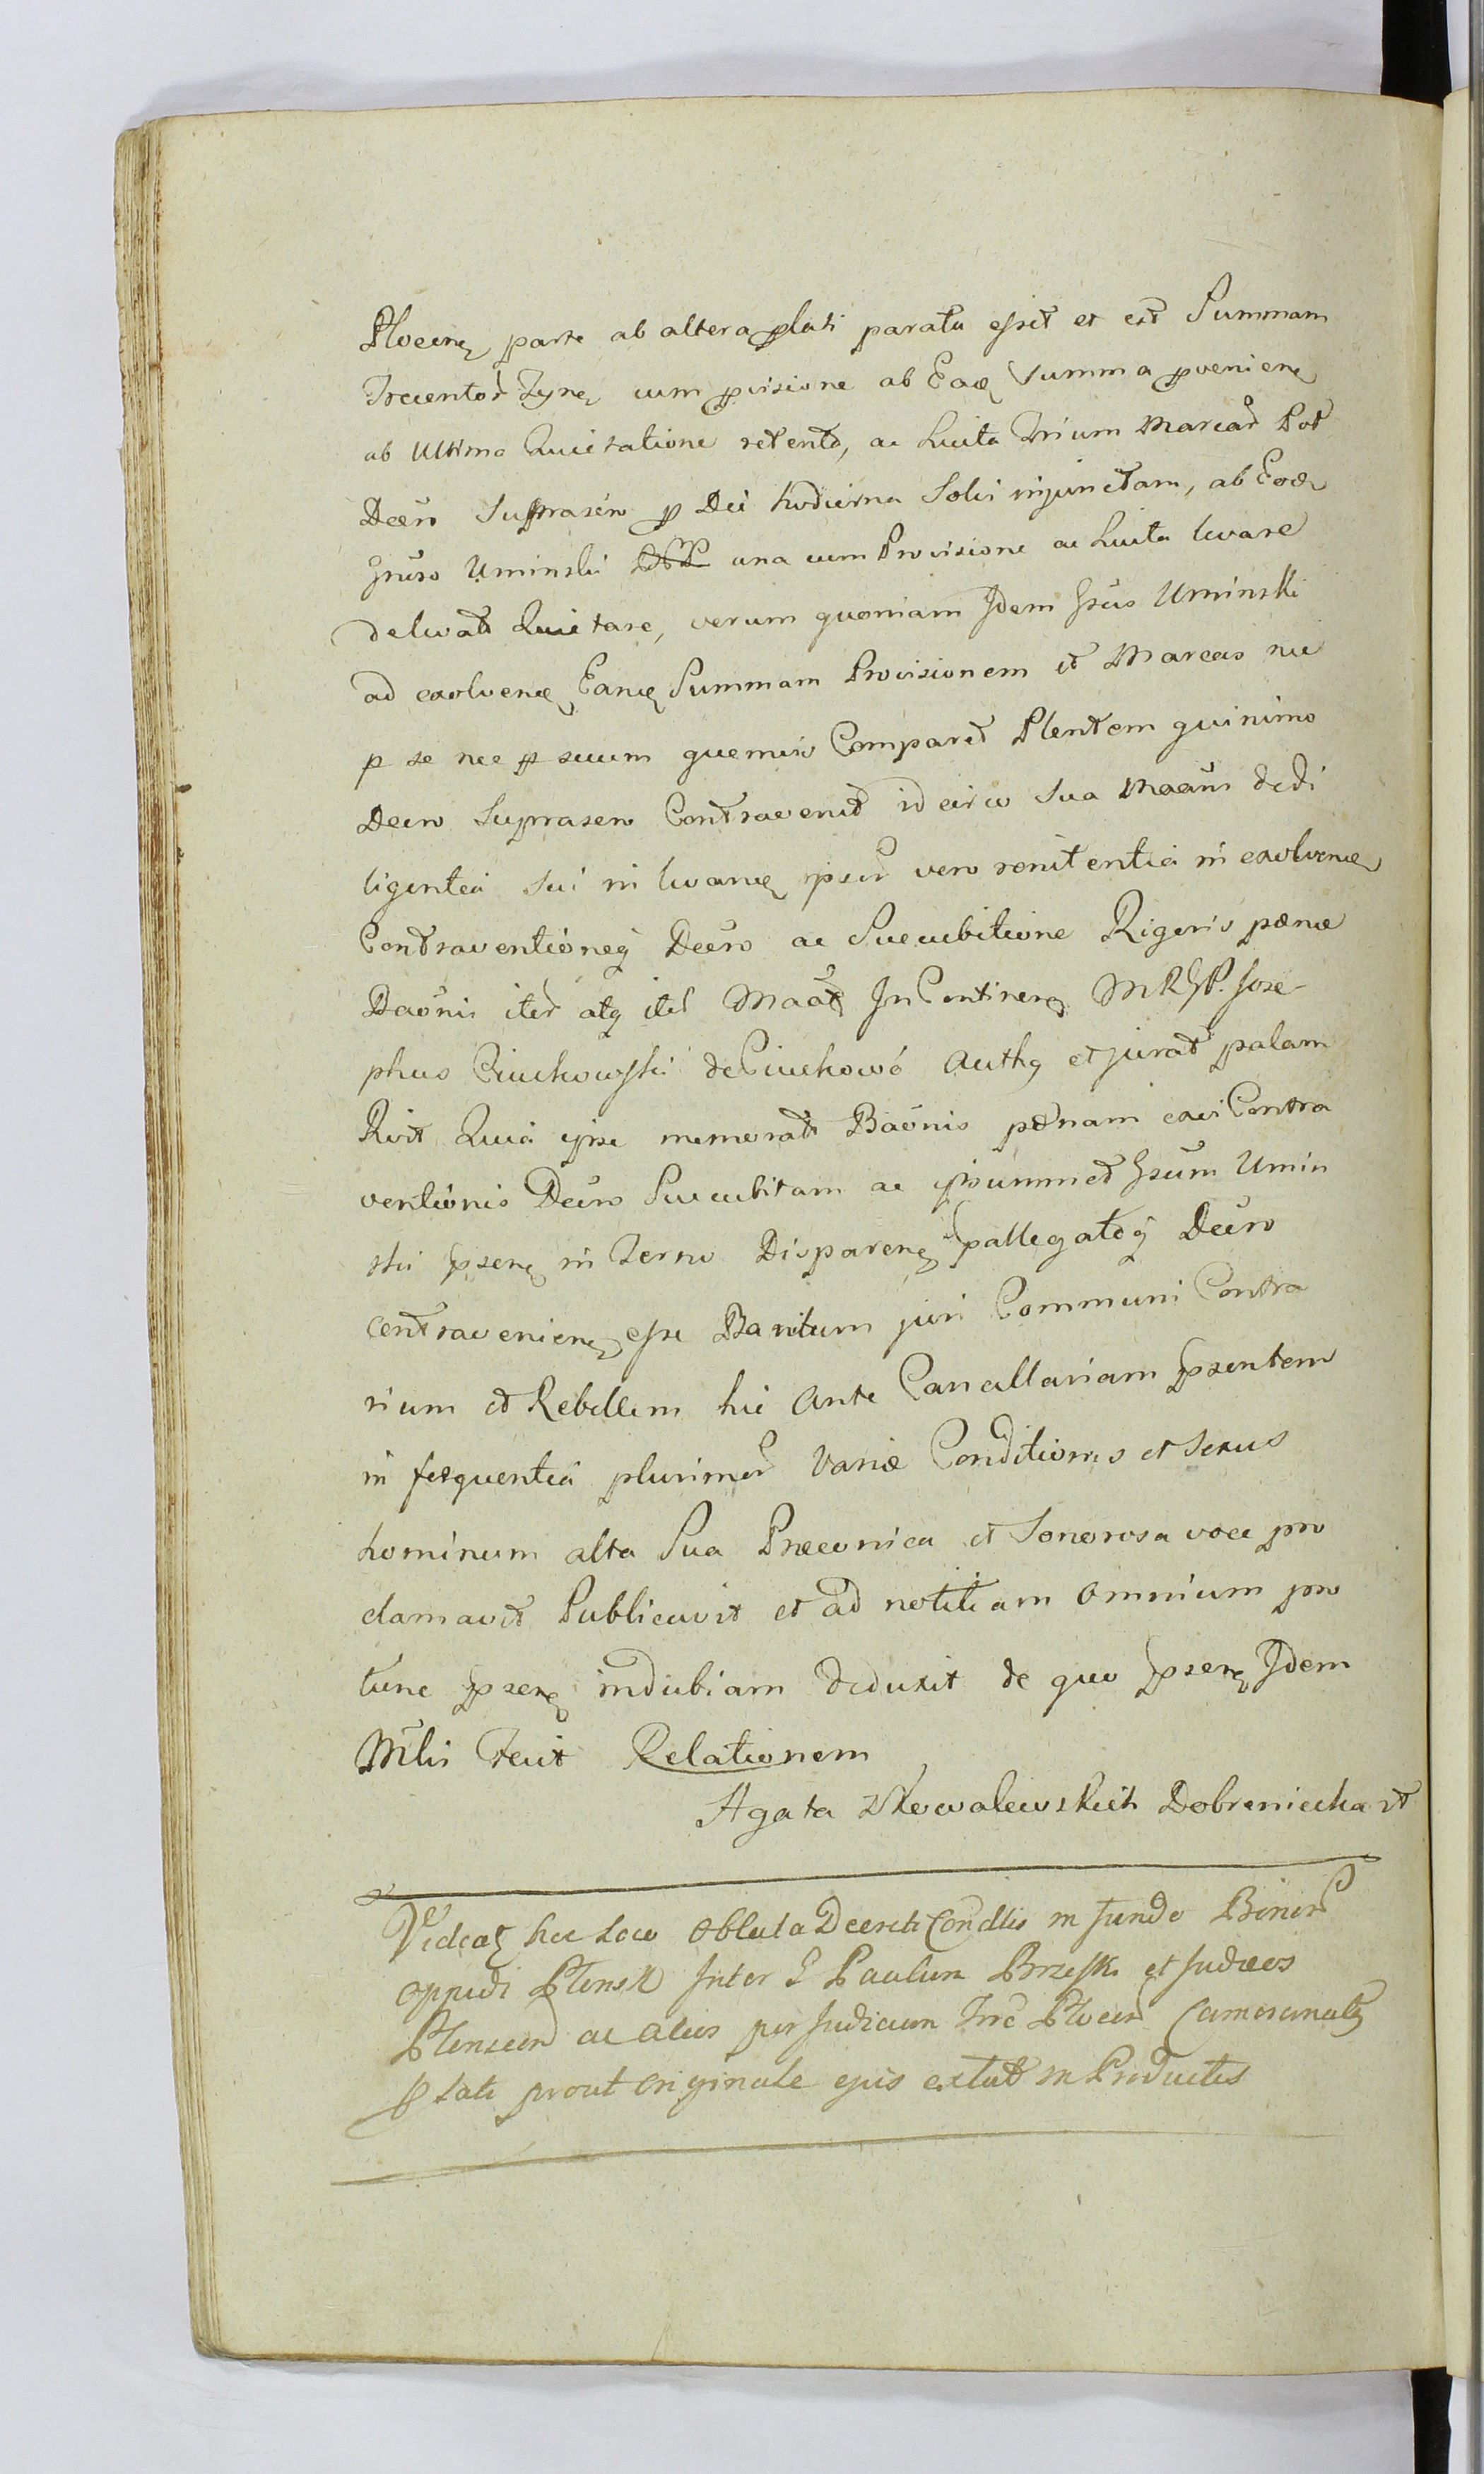 Plocen parte ab altera plati parata esset et est Summam
Trecentor Tynf cum pvisione ab Ead Summa pvenien
ab Ultima Quietatione retento, ac Luita Trium Marcar Pol
Decro Suprascro p Dei hodierna Solvi injunctam, ab Eod
Gnoso Uminski una cum Provisione ac Luita levare
delevatq Quietare, verum quoniam Idem Gsus Uminski
ad exolvend Eand Summam Provisionem et Marcas nec
p se nec p suum quemvis Comparet Plentem quinimo
Decro Suprascro Contravenit idcirco Sua Maans ad di
ligentia Sui in levand ipsi vero renitentia in exolvend
Contraventioneq Decro ac Succubitione Rigoris pænæ
Baonis iter atq iter Maatq In Continen MRGP. Jose-
phus Ciuchowski de Ciuchowó Authq et jurat palam
Rvit Quia ipse memorat Baonis pænam exvi Contra
ventionis Decro Succubitam ac ipsummet Gsum Umin
ski psen in Termo Disparen pallegatoq Decro
contravenien esse Banitum juri Communi Contra
rium et Rebellem hic Ante Cancellariam psentem
in frequentia plurimor Variæ Conditionis et Sexus
hominum alta Sua Præconica et Sonorosa voce pro
clamavit Publicavit et ad notitiam omnium pro
tunc psen indubiam deduxit de quo psen Idem
Mlis fecit Relationem
Agata z Kowalewskich Dobrzniecka
Videatq hoc Loco Oblata Decreti Condlis in fundo Bonor
oppidi Plonsk Inter G Paulum Brzeski et Judæos
Plonscen ac alios per Judicium Trre Plocen Camerarialq
p lati prout originale ejus extat in Productis